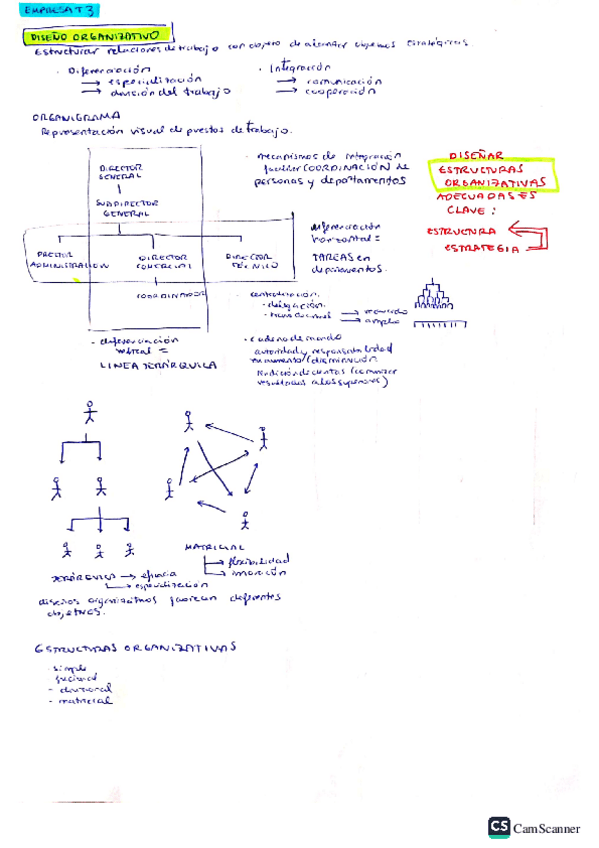 EMPRESA T3
DISEÑO ORGANIZATIVO
Estructurar relaciones de trabajo con objetivo de alcanzar objetivos estratégicos.
· Diferenciación
→ especialización
→ división del trabajo
· Integración
→ comunicación
→ cooperación
ORGANIGRAMA
Representación visual de puestos de trabajo.
DIRECTOR
GENERAL
SUBDIRECTOR
GENERAL
DIRECTOR
ADMINISTRACION
DIRECTOR
COMERCIAL
DIRECTOR
TÉCNICO
COORDINADOR
· diferenciación
vertical =
LINEA JERÁRQUICA
· mecanismos de integración
facilitar COORDINACIÓN de
personas y departamentos
diferenciación
horizontal =
TAREAS en
departamentos.
· centralización
· delegación
→ amplio
· cadena de mando
autoridad y responsabilidad
rendición de cuentas (comunicar
resultados a los superiores)
DISEÑAR
ESTRUCTURAS
ORGANIZATIVAS
ADECUADAS ES
CLAVE:
ESTRUCTURA
ESTRATEGIA
JERÁRQUICA → eficacia
→ especialización
MATRICIAL
→ flexibilidad
→ innovación
diseños organizativos diferentes
objetivos.
ESTRUCTURAS ORGANIZATIVAS
· simple
· funcional
- divisional
- matricial
CS CamScanner